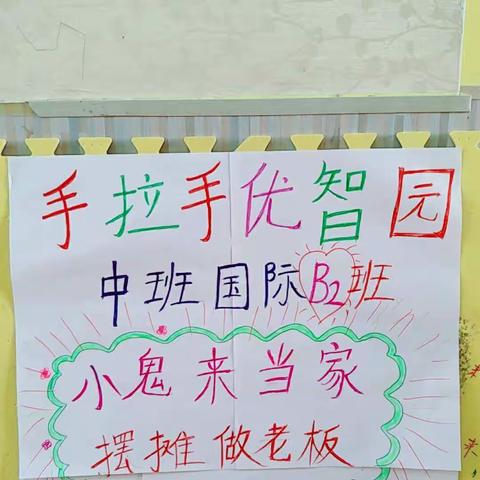 手拉手优智园
中班国际B2班
小鬼来当家
摆摊做老板